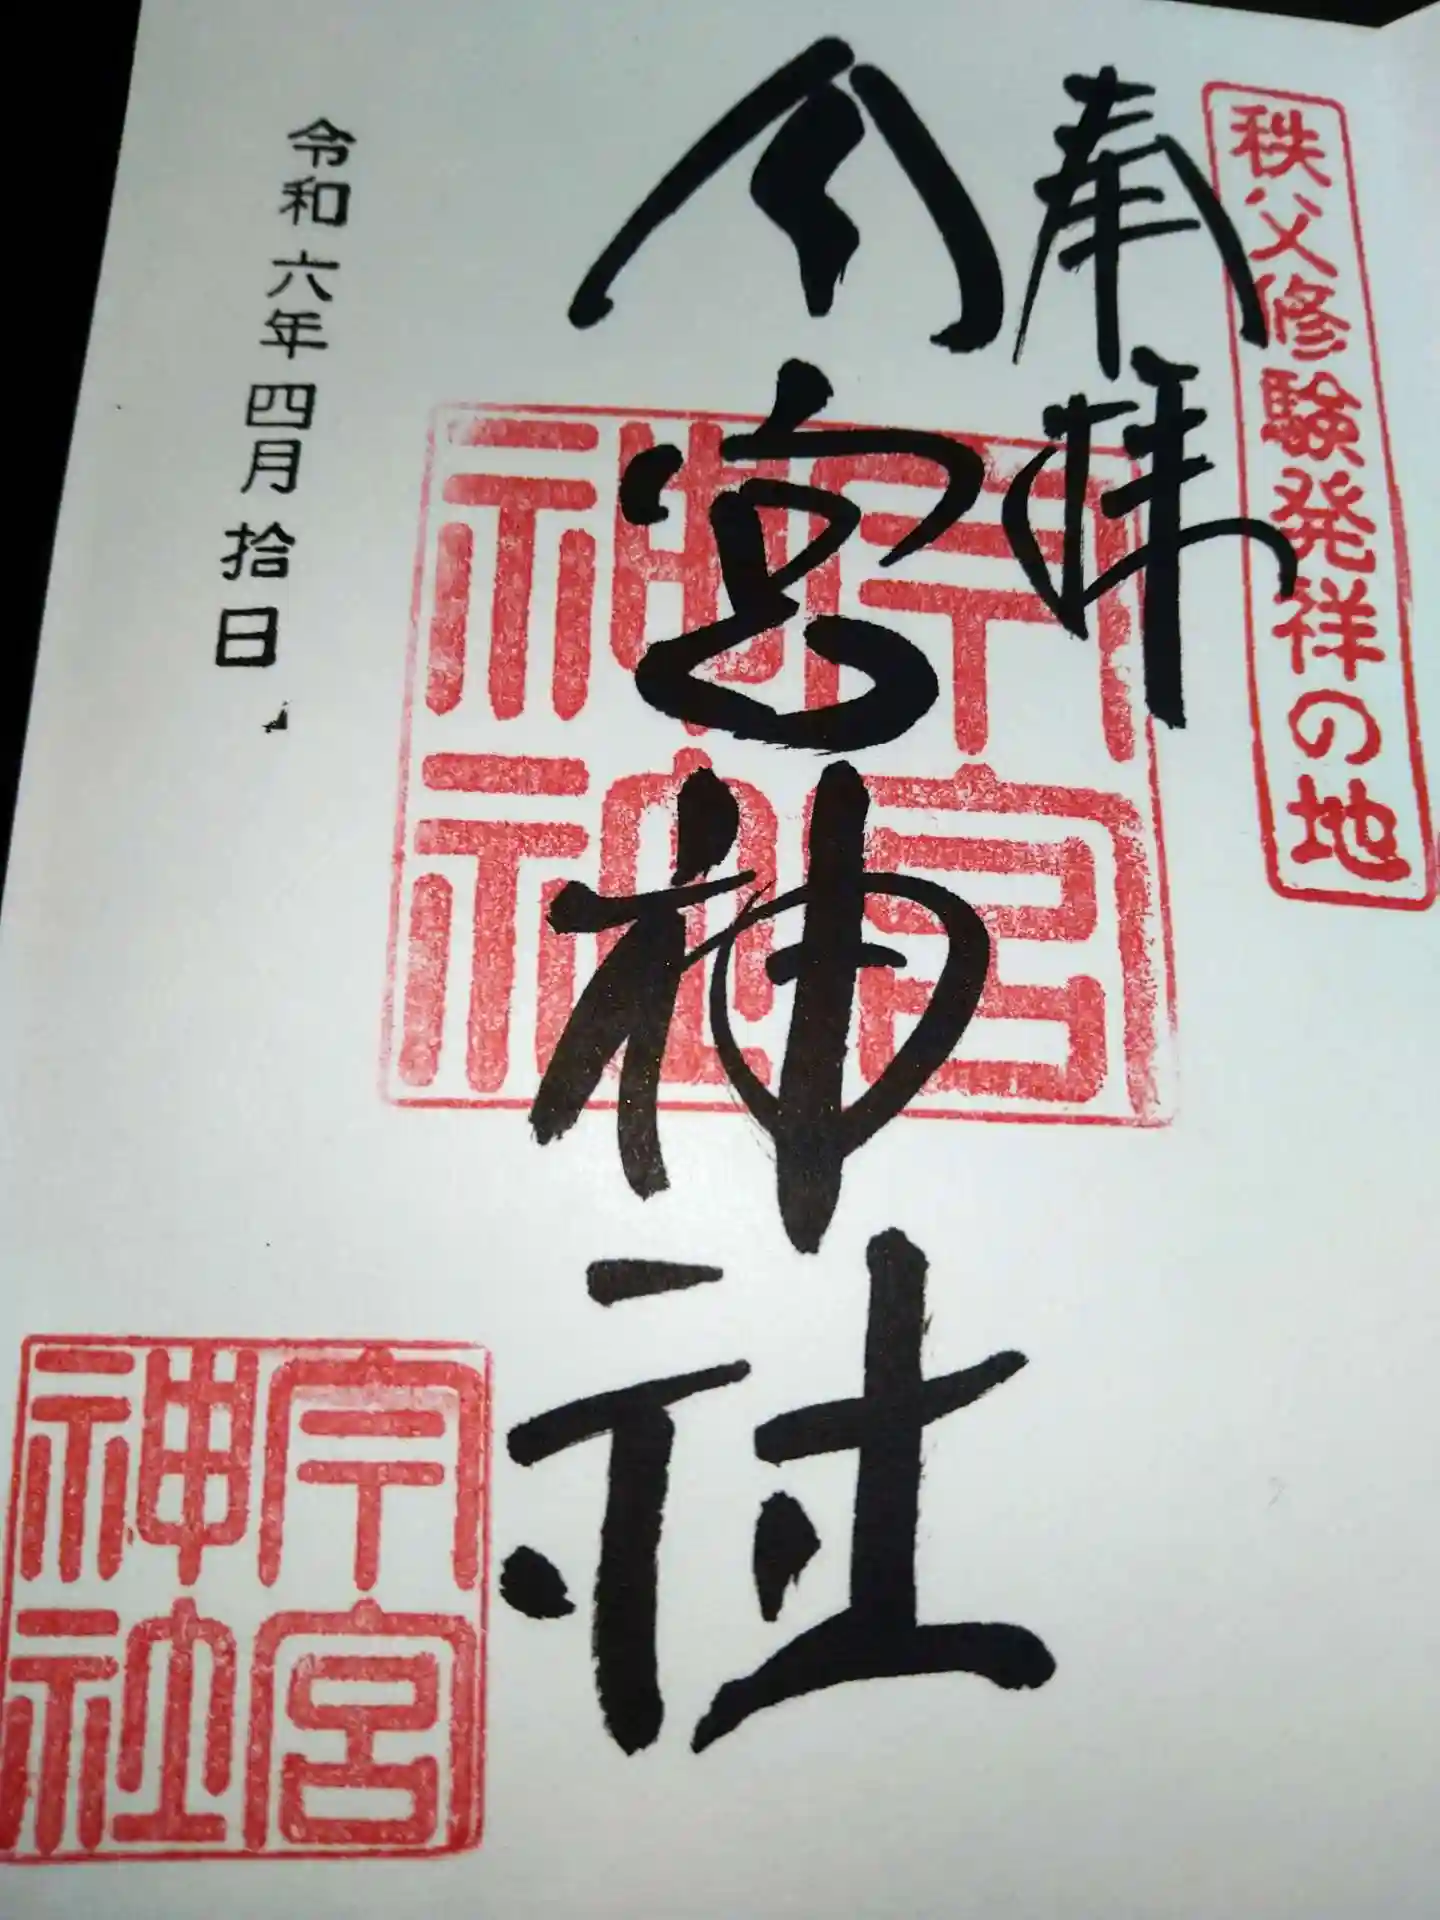 秩父修験発祥の地
奉拝
今宮神社
令和六年四月拾日
今宮神社
今宮神社